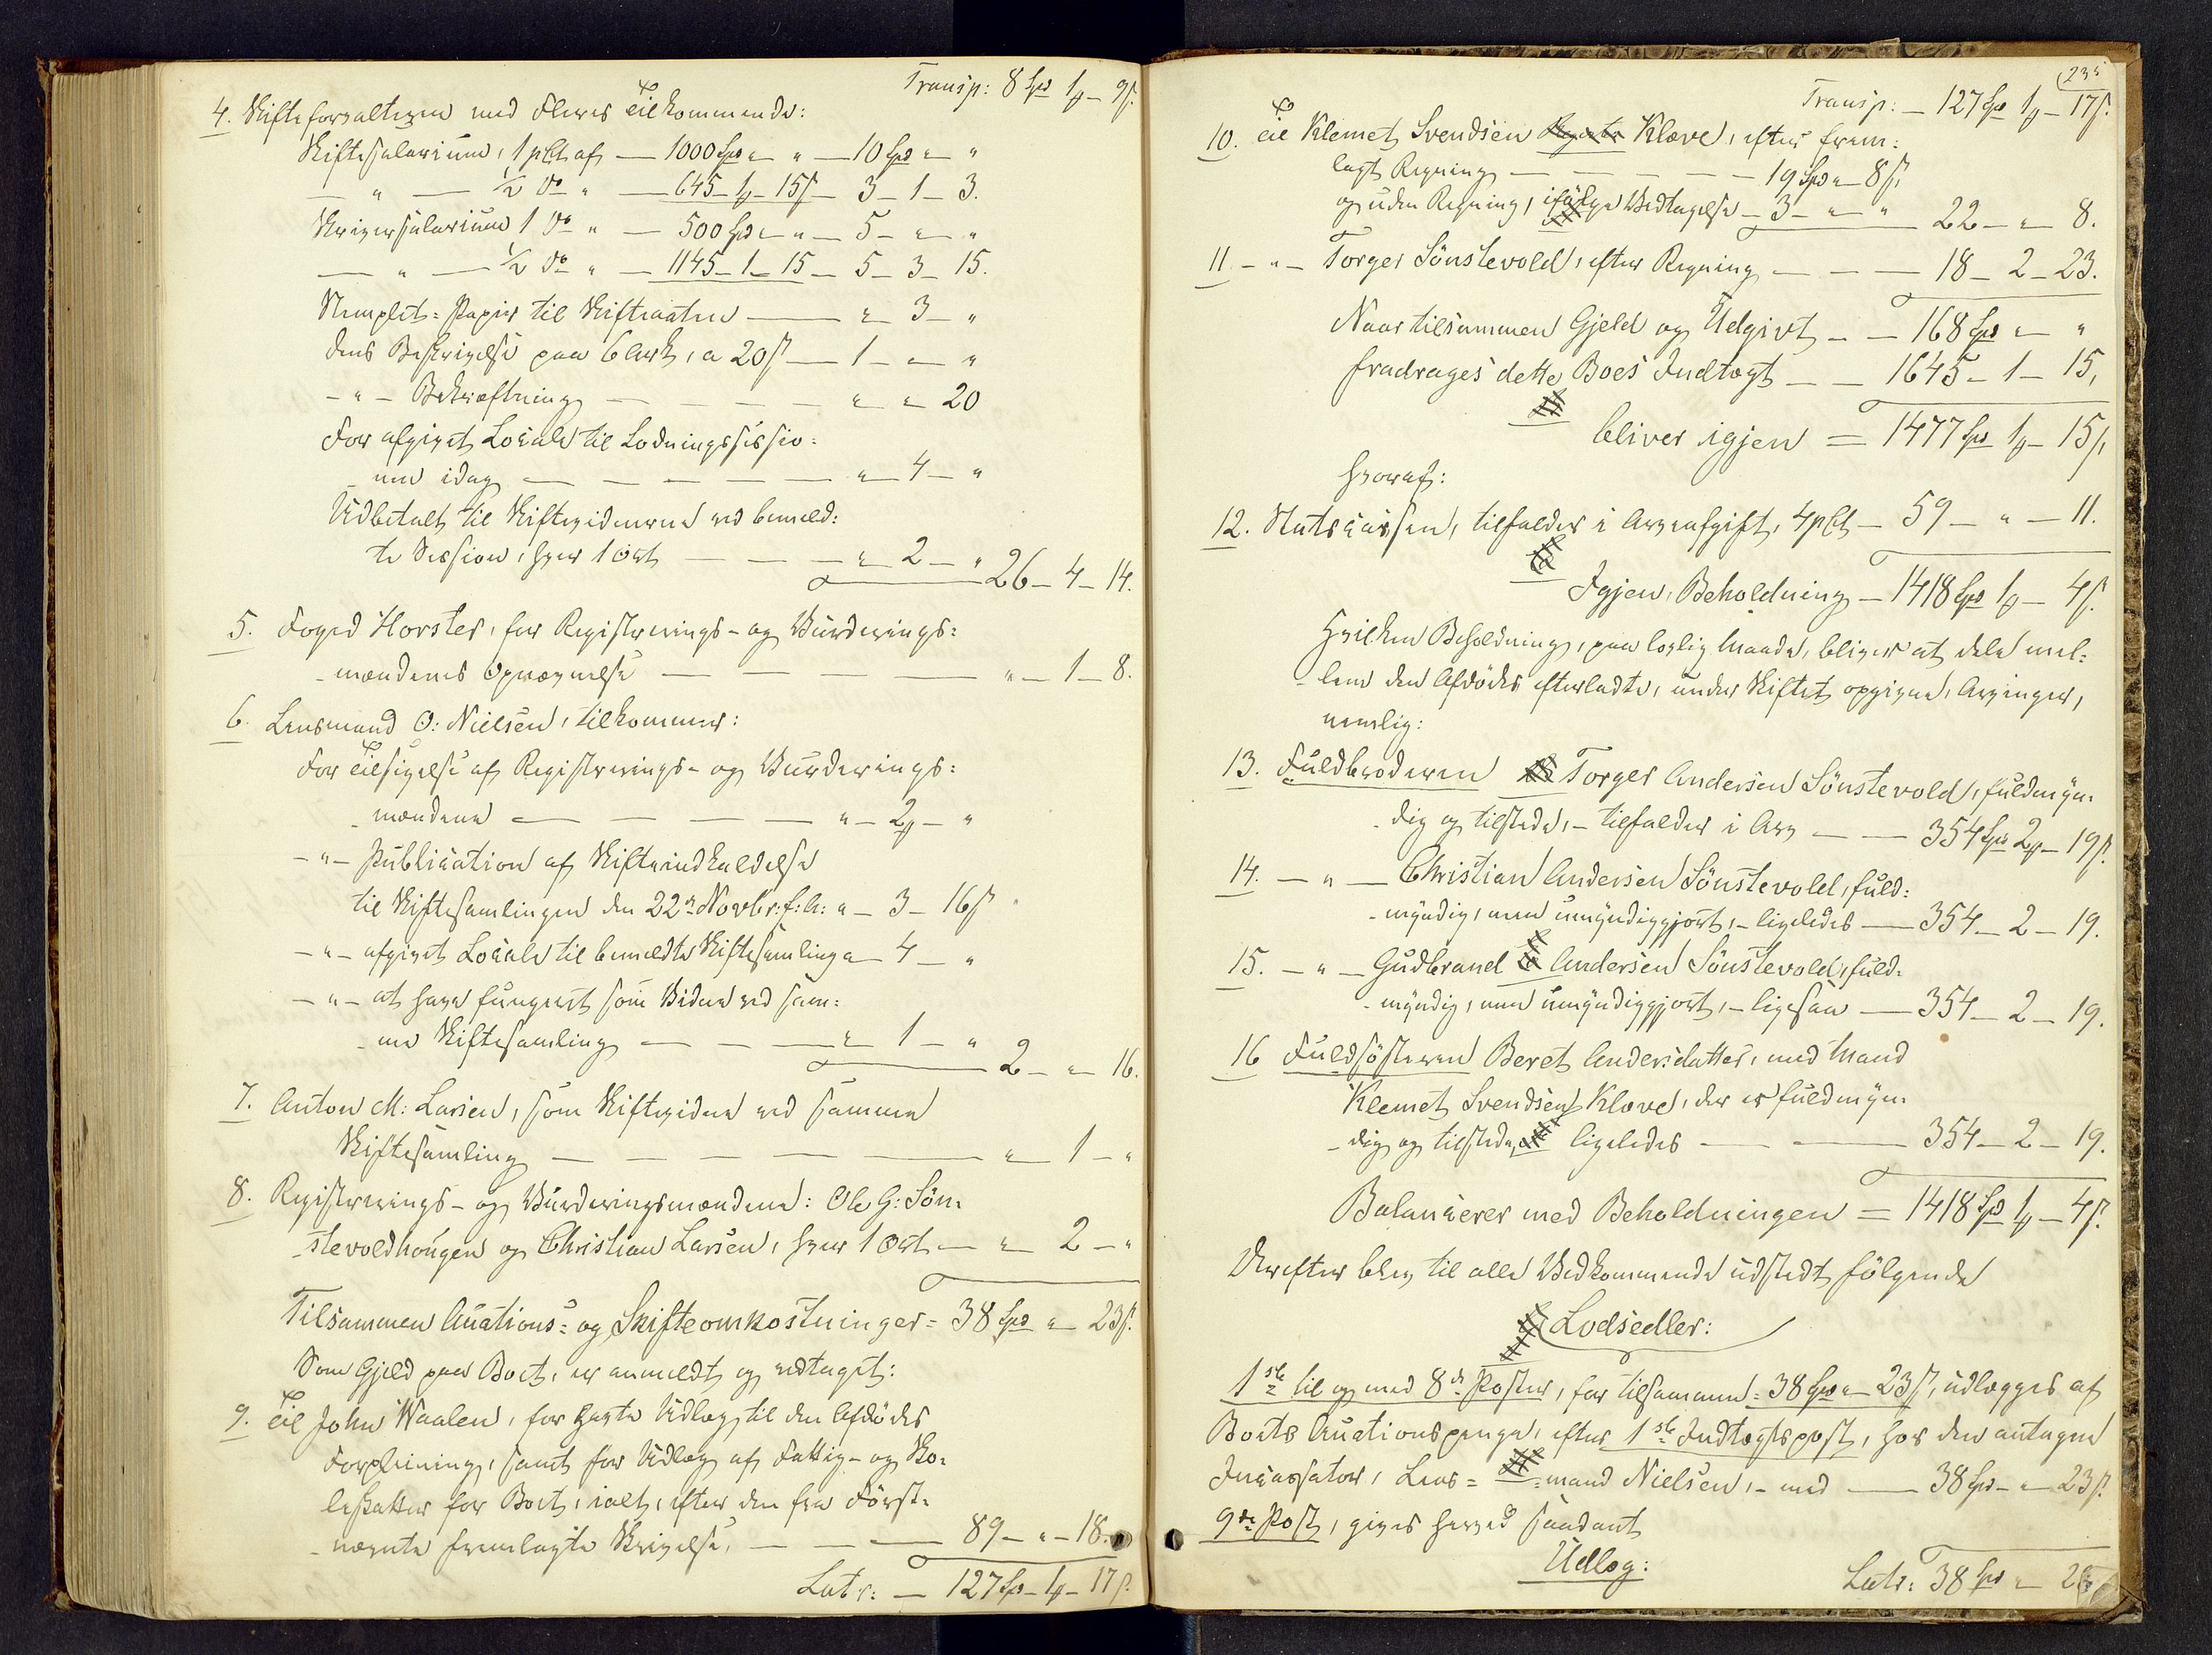 Transp: 8 Spd 1 # - 9 ß.
4. Skifteforvalteren med Fleres Tilkommende:
Skiftesalarium, 1 pCt af — 1000 Spd " " — 10 Spd " "
— " — 1/2 do " — 645 - 1 # - 15 ß — 3 - 1 - 3.
Skriversalarium 1 do " — 500 Spd " " — 5 - " "
— " — 1/2 do " — 1145 - 1 - 15 — 5 - 3 - 15.
Stemplet-Papir til Skifteacten — " 3 - "
dens Beskrivelse paa 6 Ark, a 20 ß — 1 - " "
- " - Bekræftning — — — — " " 20
For afgivet Locale til Lodningssessio:
nen idag — — — — — " 4 - "
Udbetalt til Skiftevidnerne ved bemeld:
te Session, hver 1 Ort — — " 2 - " 26 - 4 - 14.
5. Foged Horster, for Registrerings- og Vurderings:
mændenes Opnævnelse — — — — " - 1 - 8.
6. Lensmand O: Nielsen, tilkommer:
For Tilsigelse af Registrerings- og Vurderings:
mændene — — — — " - 2 # - "
- " - Publication af Skifteindkaldelse
til Skiftesamlingen den 22de Novbr: f: A: " - 3 - 16 ß
- " - afgivet Locale til bemeldte Skiftesamling " 4 - "
- " - at have fungeret som Vidne ved sam:
me Skiftesamling — — — " 1 - " 2 - " 16.
7. Anton M: Larsen, som Skiftevidne ved samme
Skiftesamling — — — — — " 1 - "
8. Registrerings- og Vurderingsmændene: Ole G: Søn-
stevoldhougen og Christian Larsen, hver 1 Ort — " 2 - "
Tilsammen Auctions- og Skifteomkostninger = 38 Spd " 23 ß.
Som Gjeld paa Boet, er anmeldt og vedtaget:
9. Til John Waalen, for havte Udlæg til den Afdødes
Forpleining, samt for Udlæg af Fattig- og Sko-
leskatter for Boet, ialt, efter den fra Først-
nævnte fremlagte Skrivelse, — — — 89 - " - 18.
Latr: — 127 Spd - 1 # - 17 ß.
235
Transp: — 127 Spd 1 # - 17 ß.
10. Til Klemet Svendsen Kløve, efter frem:
lagt Regning — — — — 19 Spd " 8 ß,
og uden Regning, ifølge Vedtagelse - 3 - " " 22 - " 8.
11 - " - Torger Sønstevold, efter Regning — — — 18 - 2 - 23.
Naar tilsammen Gjeld og Udgivt — — 168 Spd " "
fradrages dette Boes Indtægt — — 1645 - 1 - 15,
bliver igjen = 1477 Spd 1 # - 15 ß,
hvoraf:
12. Statscassen, tilfalder i Arveafgift, 4 pCt — 59 - " - 11.
Igjen, Beholdning — 1418 Spd 1 # - 4 ß.
Hvilken Beholdning, paa lovlig Maade, bliver at dele mel:
lem den Afdødes efterladte, under Skiftet opgivne, Arvinger,
nemlig:
13. Fuldbroderen Torger Andersen Sønstevold, fuldmyn-
dig og tilstede, - tilfalder i Arv — — 354 Spd 2 # - 19 ß.
14. — " — Christian Andersen Sønstevold, fuld:
myndig, men umyndiggjort, - ligeledes — 354 - 2 - 19.
15. — " — Gudbrand Andersen Sønstevold, fuld-
myndig, men umyndiggjort, - ligesaa — 354 - 2 - 19.
16 Fuldsøsteren Beret Andersdatter, med Mand
Klemet Svendsen Kløve, der er fuldmyn-
dig og tilstede, ligeledes — — 354 - 2 - 19.
Balancerer med Beholdningen = 1418 Spd 1 # - 4 ß.
Derefter blev til alle Vedkommende udstedt følgende
Lodsedler:
1ste til og med 8de Poster, for tilsammen = 38 Spd " 23 ß, udlægges af
Boets Auctionspenge, efter 1ste Indtægtspost, hos den antagne
Incassator, Lens = mand Nielsen, - med — 38 Spd - " 23 ß.
9de Post, gives herved saadant
Udlæg:
Latr: 38 Spd "